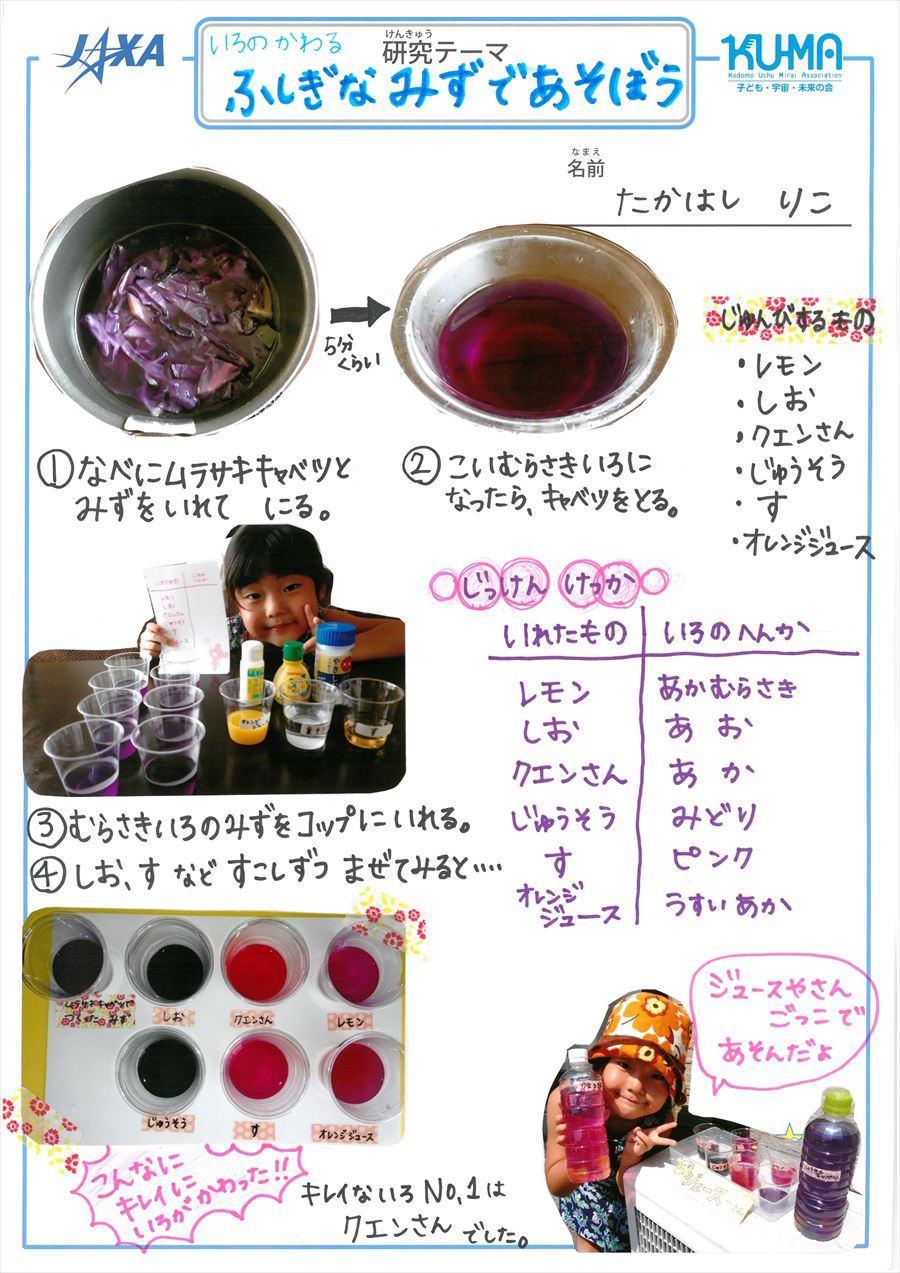 JAXA
いろのかわる
けんきゅう
研究テーマ
ふしぎなみずであそぼう
KU-MA
Kodomo Uchu Mirai Association
子ども・宇宙・未来の会
なまえ
名前
たかはし りこ
5分
くらい
じゅんびするもの
・レモン
・しお
・クエンさん
・じゅうそう
・す
・オレンジジュース
①なべにムラサキキャベツと
みずをいれて にる。
②こいむらさきいろに
なったら、キャベツをとる。
いれたもの
レモン
しお
クエンさん
じゅうそう
す
オレンジジュース
す
③むらさきいろのみずをコップにいれる。
④しお、す など すこしずつ まぜてみると‥‥
じっけん けっか
いれたもの いろのへんか
レモン あかむらさき
しお あお
クエンさん あか
じゅうそう みどり
す ピンク
オレンジ
ジュース うすいあか
ムラサキキャベツで
つくった みず
しお
クエンさん
レモン
じゅうそう
す
オレンジジュース
こんなに
キレイに
いろがかわった!!
キレイないろ NO,1は
クエンさん でした。
ジュースやさん
ごっこで
あそんだよ